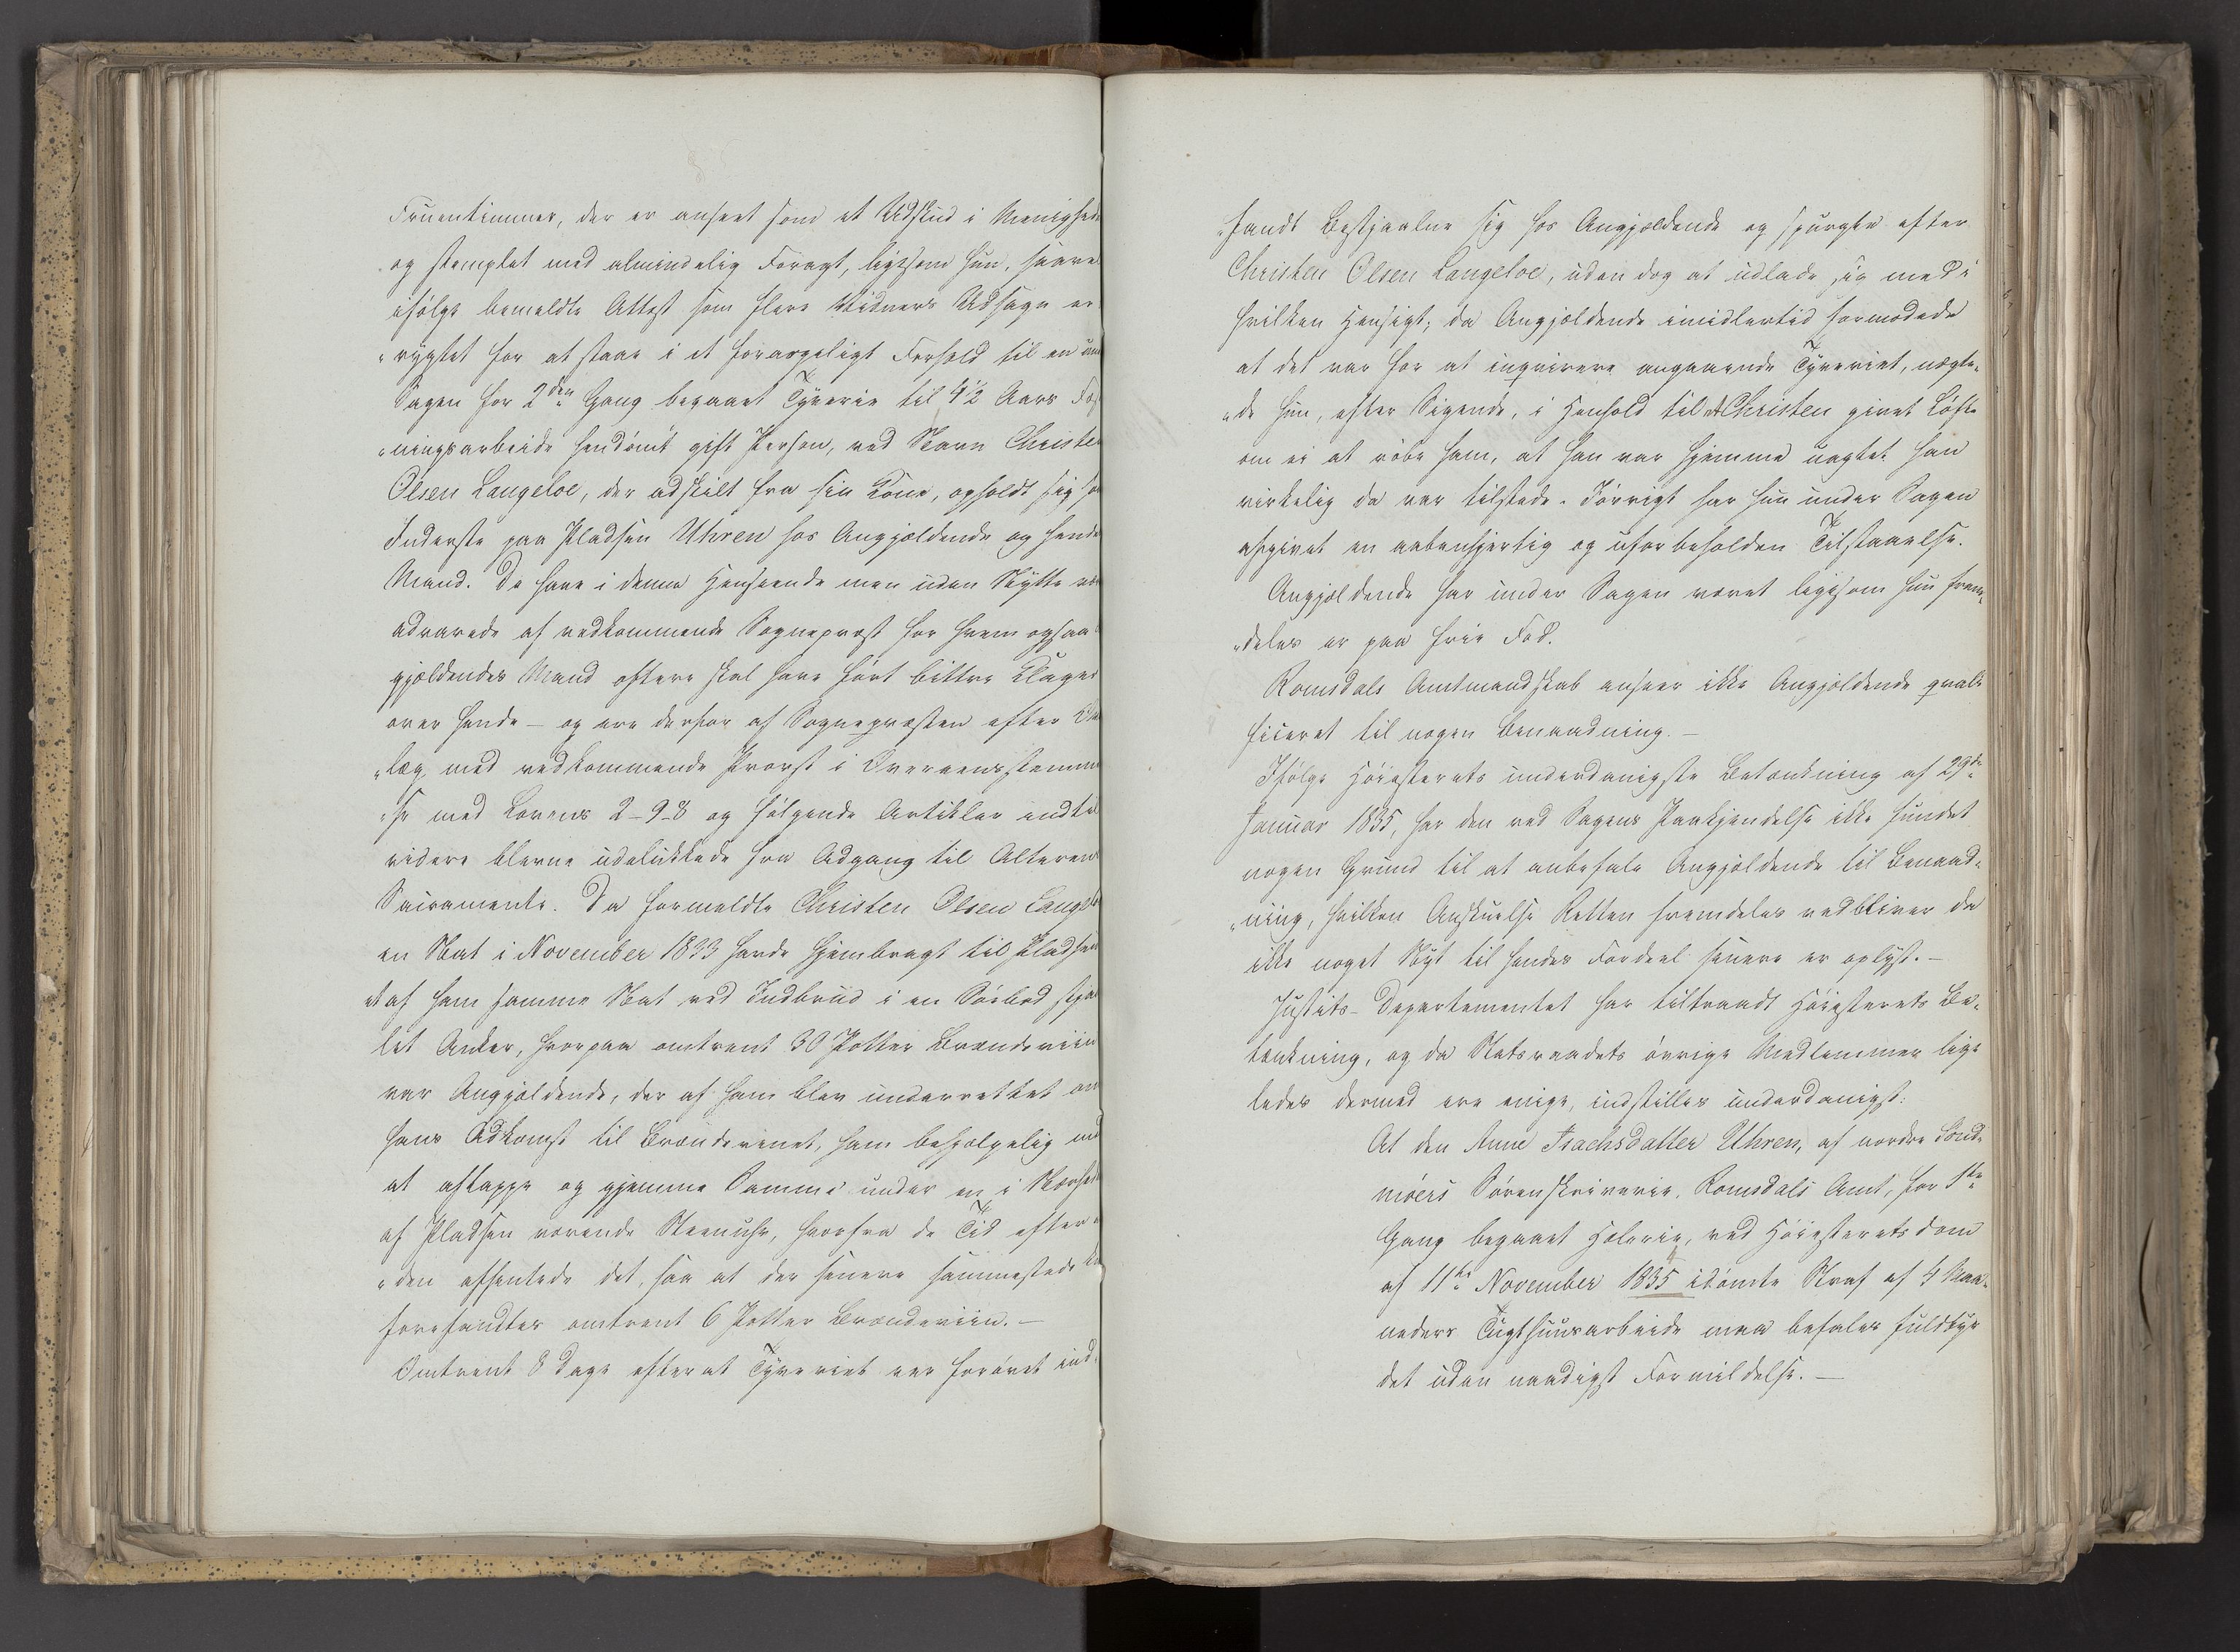 Fruentimmer, der er anseet som et Udskud i Menighed
og stemplet med almindelig Foragt, ligesom hun, saavel
ifølge bemeldte Attest som flere Vidners Udsagn er
"rygtet for at staae i et forargeligt Forhold til en un
Sagen for 2den Gang begaaet Tyverie til 4½ Aars Fæst
"ningsarbeide hendømt gift Person, ved Navn Christe
Olsen Langeloe, der adskilt fra sin Kone, opholdt sig so
Inderste paa Pladsen Uhren hos Angjældende og hende
Mand. De have i denne Henseende men uden Nytte væ
advarede af vedkommende Sognepræst for hvem ogsaa
gjældendes Mand oftere skal have ført bittre Klager
over hende – og ere derfor af Sognepræsten efter
"læg med vedkommende Provst i Overeensstemm
"se med Lovens 2-9-8 og følgende Artikler indtil
videre blevne udelukkede fra Adgang til Alterens
Sacramente. Da formeldte Christen Olsen Langel
en Nat i November 1833 havde hjembragt til Pladsen
et af ham samme Nat ved Indbrud i en Søebod stjaa
let Anker, hvorpaa omtrent 30 Potter Brændeviin
var Angjældende, der af ham blev underrettet om
hans Adkomst til Brændevinet, ham behjælpelig med
at aftappe og gjemme Samme under en i Nærhed
af Pladsen værende Steenuhr, hvorfra de Tid efter
"den afhentede det, saa at der senere sammesteds
forefandtes omtrent 6 Potter Brændeviin. –
Omtrent 8 Dage efterat Tyveriet var forøvet ind
"fandt Bestjaalne sig hos Angjældende og spurgte efter
Christen Olsen Langeloe, uden dog at udlade sig med i
hvilken Hensigt; da Angjældende imidlertid formodede
at det var for at inqvirere angaaende Tyveriet, nægte¬
"de hun, efter Sigende, i Henhold til et Christen givet Løfte
om ei at røbe ham, at han var hjemme uagtet han
virkelig da var tilstede. Iøvrigt har hun under Sagen
afgivet en aabenhjertig og uforbeholden Tilstaaelse.
Angjældende har under Sagen været ligesom hun frem¬
"deles er paa frie Fod.
Romsdals Amtmandskab anseer ikke Angjældende qvali
ficeret til nogen Benaadning. –
Ifølge Høiesterets underdanigste Betænkning af 29de
Januar 1835, har den ved Sagens Paakjendelse ikke fundet
nogen Grund til at anbefale Angjældende til Benaad¬
"ning, hvilken Anskuelse Retten fremdeles vedbliver da
ikke noget Nyt til hendes Fordeel senere er oplyst. –
Justits-Departementet har tiltraadt Høiesterets Be¬
tænkning, og da Statsraadets øvrige Medlemmer lige
ledes dermed ere enige, indstilles underdanigst:
At den Anne Isachsdatter Uhren, af nordre Sønd¬
møers Sorenskriverie, Romsdals Amt, for 1ste
Gang begaaet Hælerie, ved Høiesteretsdom
af 11te November 1835 idømte Straf af 4 Maa¬
neders Tugthuusarbeide maa befales fuldbyr
det uden naadigst Formildelse. –